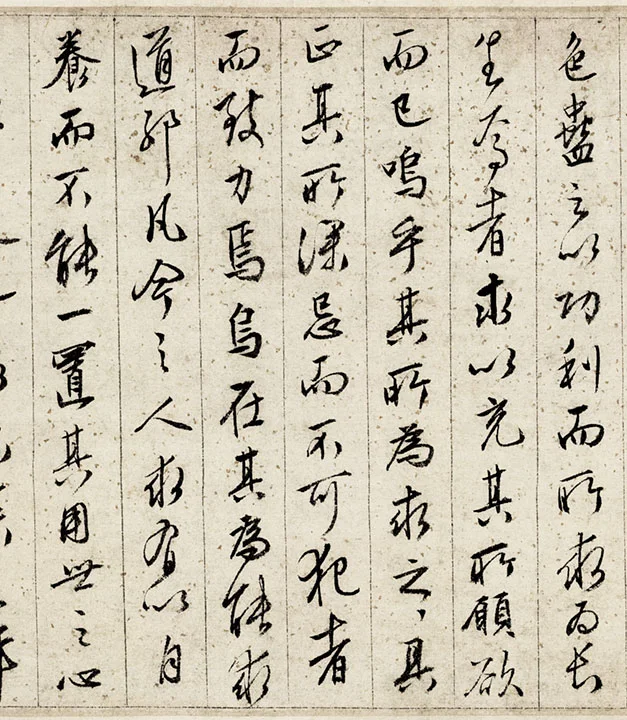 色蠱之以功利而所求為長
生焉者求以充其所願欲
而已嗚乎其所為求之之具
正其所深忌而不可犯者
而致力焉烏在其為能求
道耶凡今之人求有以自
養而不能一置其用世之心